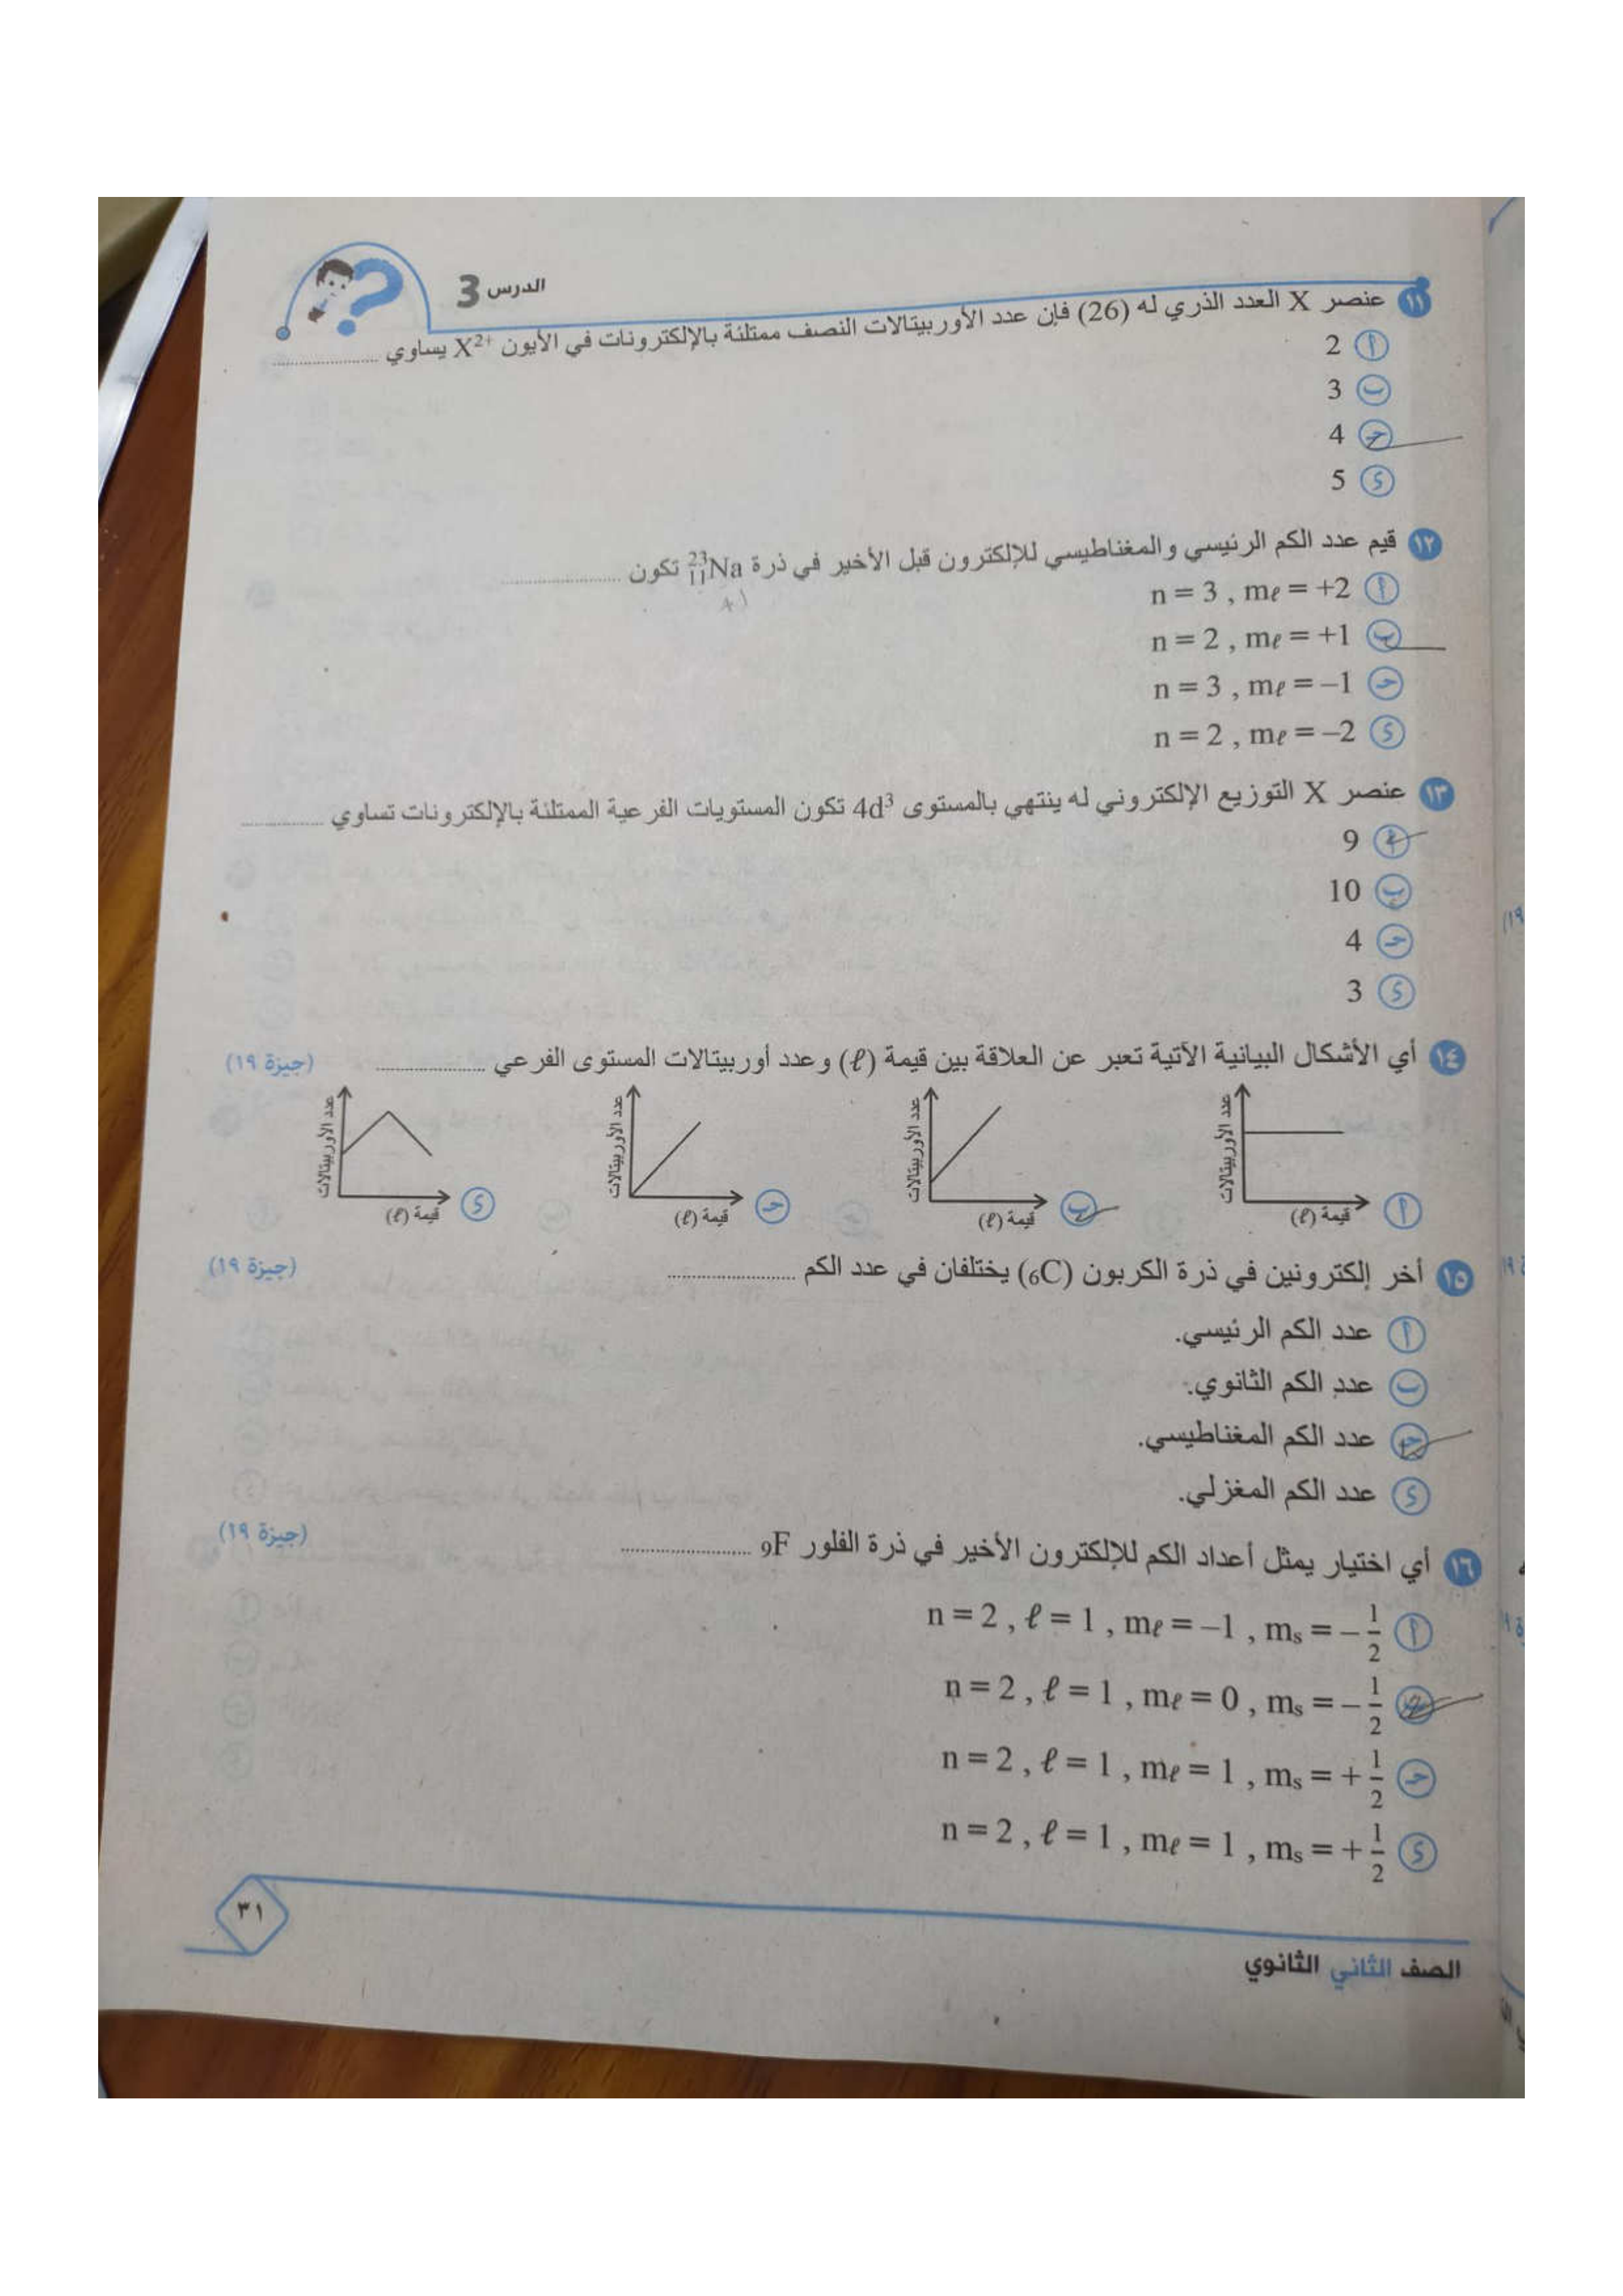 الدرس 3
١١ عنصر X العدد الذري له (26) فإن عدد الأوربيتالات النصف ممتلئة بالإلكترونات في الأيون X²⁺ يساوي ....................
أ 2
ب 3
حـ 4
د 5
١٢ قيم عدد الكم الرئيسي والمغناطيسي للإلكترون قبل الأخير في ذرة ²³₁₁Na تكون ....................
أ n = 3 , mℓ = +2
ب n = 2 , mℓ = +1
حـ n = 3 , mℓ = –1
د n = 2 , mℓ = –2
١٣ عنصر X التوزيع الإلكتروني له ينتهي بالمستوى 4d³ تكون المستويات الفرعية الممتلئة بالإلكترونات تساوي ....................
أ 9
ب 10
حـ 4
د 3
١٤ أي الأشكال البيانية الآتية تعبر عن العلاقة بين قيمة (ℓ) وعدد أوربيتالات المستوى الفرعي .................... (جيزة ١٩)
أ عدد الأوربيتالات قيمة (ℓ)
ب عدد الأوربيتالات قيمة (ℓ)
حـ عدد الأوربيتالات قيمة (ℓ)
د عدد الأوربيتالات قيمة (ℓ)
١٥ أخر إلكترونين في ذرة الكربون (₆C) يختلفان في عدد الكم .................... (جيزة ١٩)
أ عدد الكم الرئيسي.
ب عدد الكم الثانوي.
حـ عدد الكم المغناطيسي.
د عدد الكم المغزلي.
١٦ أي اختيار يمثل أعداد الكم للإلكترون الأخير في ذرة الفلور ₉F .................... (جيزة ١٩)
أ n = 2 , ℓ = 1 , mℓ = –1 , ms = – 1/2
ب n = 2 , ℓ = 1 , mℓ = 0 , ms = – 1/2
حـ n = 2 , ℓ = 1 , mℓ = 1 , ms = + 1/2
د n = 2 , ℓ = 1 , mℓ = 1 , ms = + 1/2
٣١
الصف الثاني الثانوي